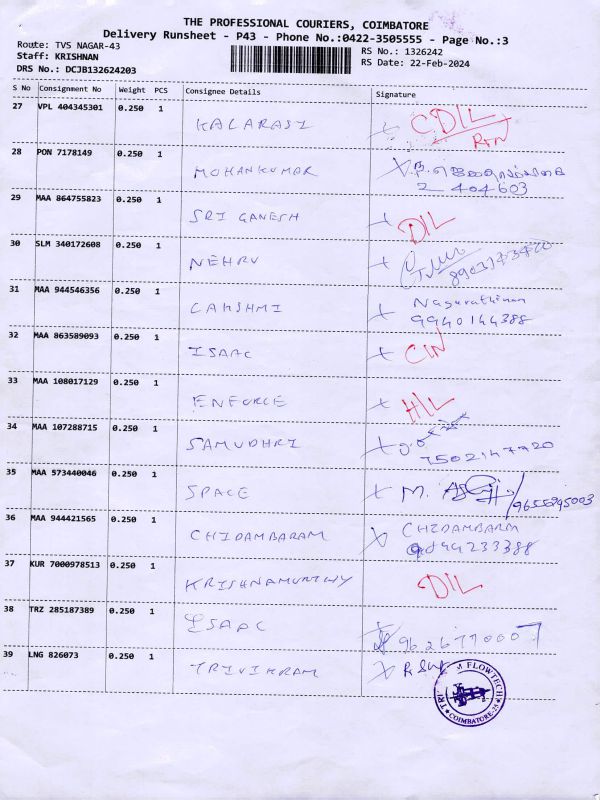 THE PROFESSIONAL COURIERS, COIMBATORE
Delivery Runsheet - P43 - Phone No.:0422-3505555 - Page No.:3
Route: TVS NAGAR-43
RS No.: 1326242
Staff: KRISHNAN
RS Date: 22-Feb-2024
DRS No.: DCJB132624203
S No Consignment No Weight PCS Consignee Details Signature
27 VPL 404345301 0.250 1
KALARASI X CDIL
RTN
28 PON 7178149 0.250 1
MOHANKUMAR X
2 404603
29 MAA 864755823 0.250 1
SRI GANESH X DIL
30 SLM 340172608 0.250 1
NEHRU X
31 MAA 944546356 0.250 1
LAKSHMI X Nagarathinam
9940144388
32 MAA 863589093 0.250 1
ISAAC X CIN
33 MAA 108017129 0.250 1
ENFORCE X HIL
34 MAA 107288715 0.250 1
SAMUDHRI X
7502147720
35 MAA 573440046 0.250 1
SPACE X M.
36 MAA 944421565 0.250 1
CHIDAMBARAM X CHIDAMBARM
37 KUR 7000978513 0.250 1
KRISHNAMURTHY DIL
38 TRZ 285187389 0.250 1
ISAAC 9626770007
39 LNG 826073 0.250 1
TRIVIKRAM X
FLOWTECH
COIMBATORE